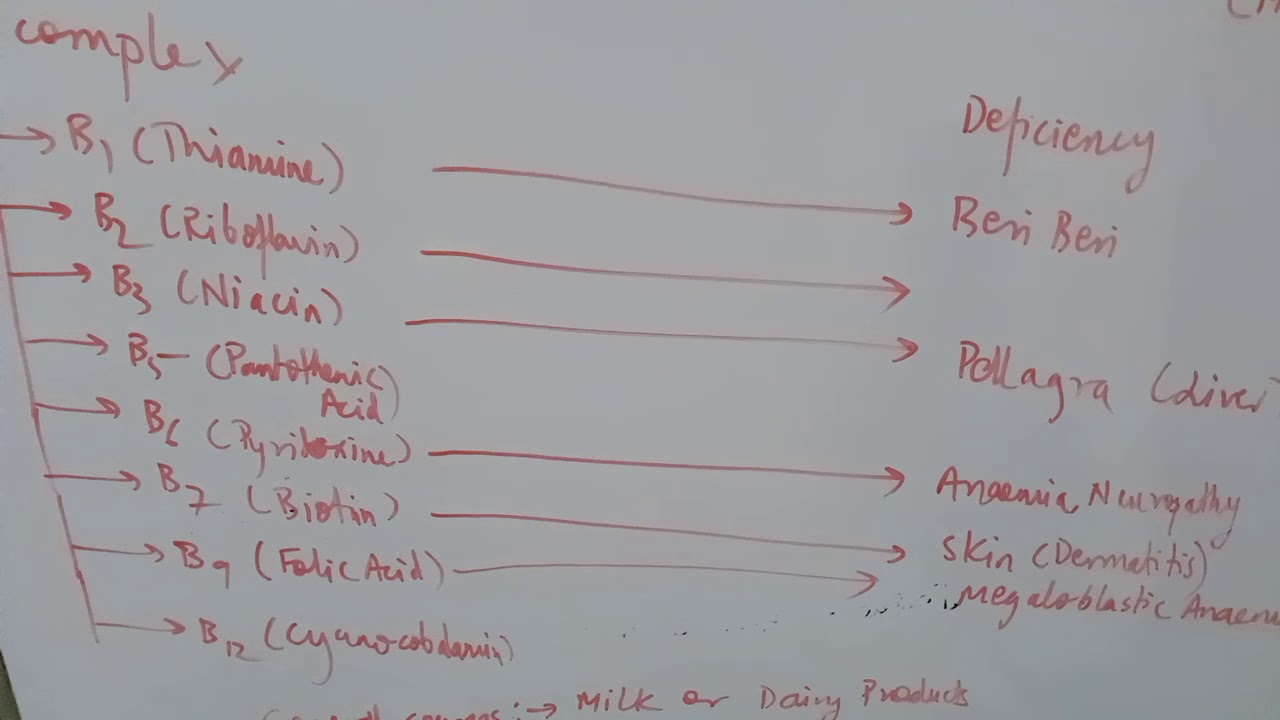 complex
Deficiency
B1 (Thiamine) → Beri Beri
B2 (Riboflavin) →
B3 (Niacin) → Pellagra (Liver
B5 - (Pantothenic
Acid)
B6 (Pyridoxine) → Anaemia, Neuropathy
B7 (Biotin) → Skin (Dermatitis)
B9 (Folic Acid) → Megaloblastic Anaem
B12 (Cyanocobdamin)
:→ Milk or Dairy Products